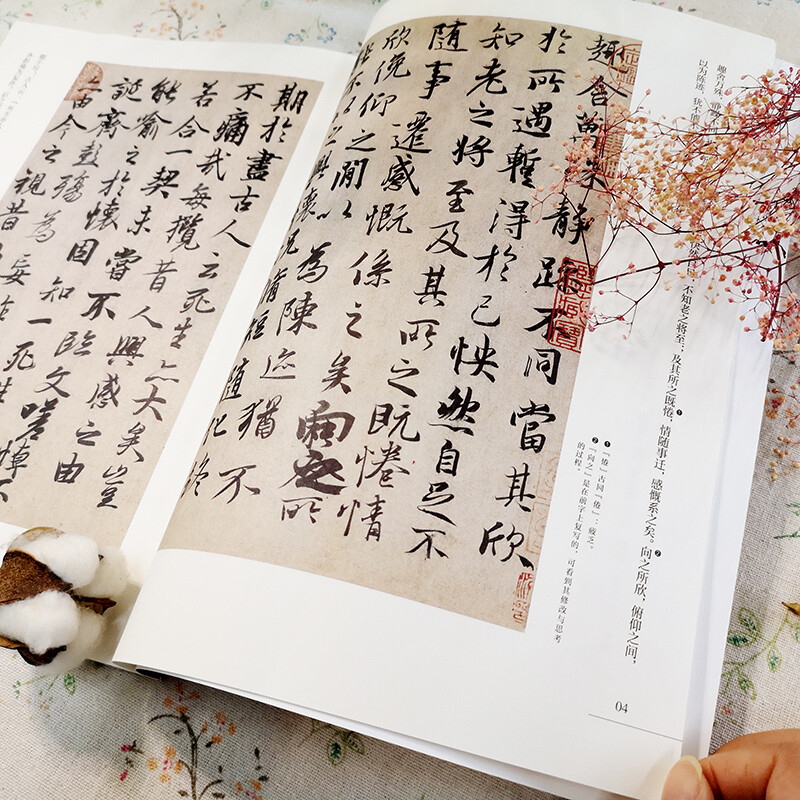 趣舍万殊，静
不知老之将至；及其所之既惓，❶情随事迁，感慨系之矣。❷向之所欣，俯仰之间，
以为陈迹，犹不
❶「惓」古同「倦」：疲乏。
❷「向之」是在前字上复写的，可看到其修改与思考
的过程。
趣舍萬殊靜躁不同當其欣
於所遇蹔得於己怏然自足不
知老之將至及其所之既惓情
隨事遷感慨係之矣向之所
欣俛仰之間以為陳迹猶不
能不以之興懷況脩短隨化終
04
期於盡古人云死生亦大矣豈
不痛哉每攬昔人興感之由
若合一契未嘗不臨文嗟悼不
能喻之於懷固知一死生
誕齊彭殤為妄
由今之視昔